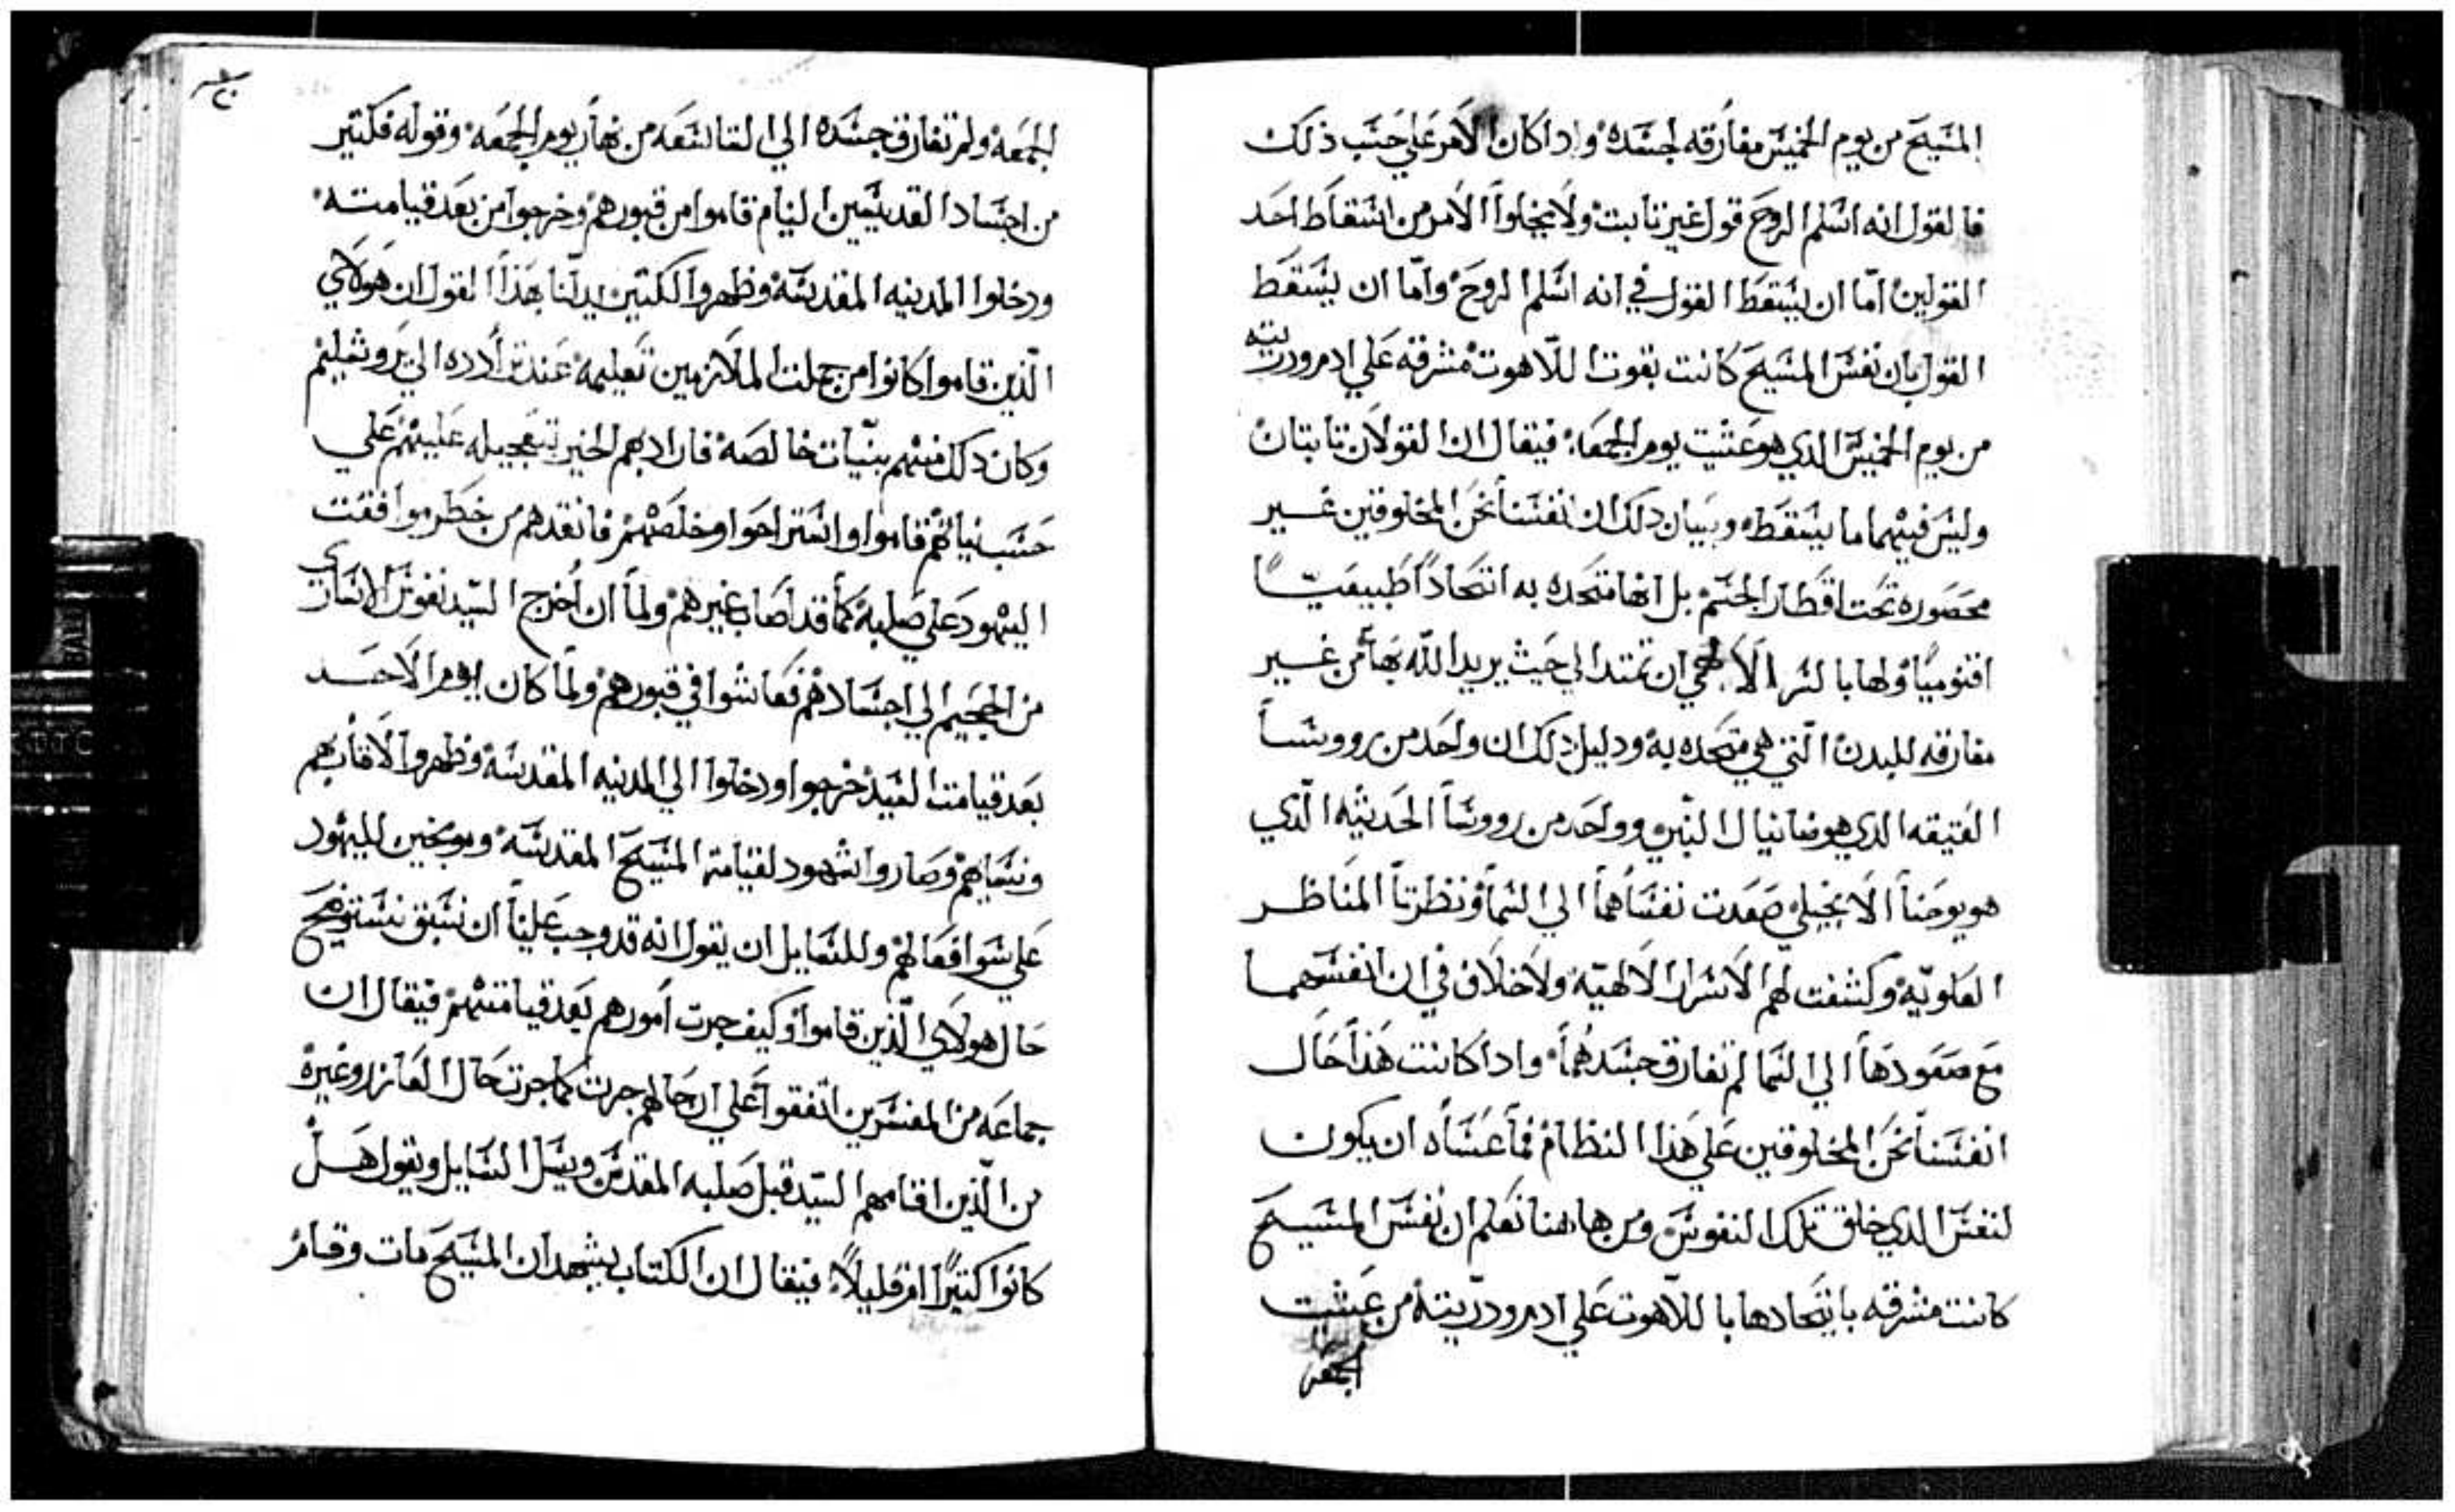 المسيح من يوم الخميس مفارقه لجسده واداكان الامر علي حسب ذلك
فالقول انه اسلم الروح قول غير تابت ولا يخلوا الامر من اسقاط احد
القولين اما ان يسقط القول في انه اسلم الروح واما ان يسقط
القول بان نفس المسيح كانت بقوت اللاهوت مشرقه علي ادم ودريته
من يوم الخميس الدي هو عشيت يوم الجمعه فيقال ان القولان تابتان
وليس فيهما ما يسقط وبيان دلك ان انفسنا نحن المخلوقين غير
محصوره تحت اقطار الجسم بل انها متحده به اتحادًا طبيعيًّا
اقنوميًا ولها بالسر الالاهي ان تمتد الي حيث يريد الله بها من غير
مفارقه للبدن التي هي متحده به ودليل دلك ان واحد من رووسا
العتيقه الدي هو دانيال النبي وواحد من رووسا الحديثه الدي
هو يوحنا الانجيلي صعدت نفساهما الي السما ونظرتا المناظر
العلويه وكشفت لهم الاسرار الالهيه ولاخلاف في ان انفسهما
مع صعودها الي السما لم تفارق جسدهما واداكانت هذا حال
انفسنا نحن المخلوقين علي هذا النظام فما عساه ان يكون
لنفس الدي خلق تلك النفوس ومن هاهنا نعلم ان نفس المسيح
كانت مشرقه باتحادها باللاهوت علي ادم ودريته من عشيت
الجمعه
الجمعه ولم تفارق جسده الي التاسعه من نهار يوم الجمعه وقوله فكتير
من اجساد القديسين النيام قاموا من قبورهم وخرجوا من بعد قيامته
ودخلوا المدينه المقدسه وظهروا لكتيرين يدلنا بهذا القول ان هولاي
الذين قاموا كانوا من جملت الملازمين تعليمه عند تردده الي يروشليم
وكان دلك منهم بنيات خالصه فاراد بهم الخير بتعجيله عليهم علي
حسب نياتهم قاموا واستراحوا وخلصهم فانقدهم من خطر موافقت
اليهود علي صلبه كما قد اصاب غيرهم ولما ان اخرج السيد نفوس الاساري
من الجحيم الي اجسادهم فعاشوا في قبورهم ولما كان يوم الاحد
بعد قيامت السيد خرجوا ودخلوا الي المدينه المقدسه وظهروا لاقاربهم
ونسباهم وصاروا شهود لقيامة المسيح المقدسه وموبخين لليهود
علي سوا فعالهم وللسايل ان يقول انه قد وجب علينا ان نستوضح
حال هولاي الذين قاموا وكيف جرت امورهم بعد قيامتهم فيقال ان
جماعه من المفسرين اتفقوا علي ان حالهم جرت كما جرت حال العازر وغيره
من الذين اقامهم السيد قبل صلبه المقدس ويسل السايل ويقول هل
كانوا كتيرًا ام قليلاً فيقال ان الكتاب يشهد ان المسيح مات وقام